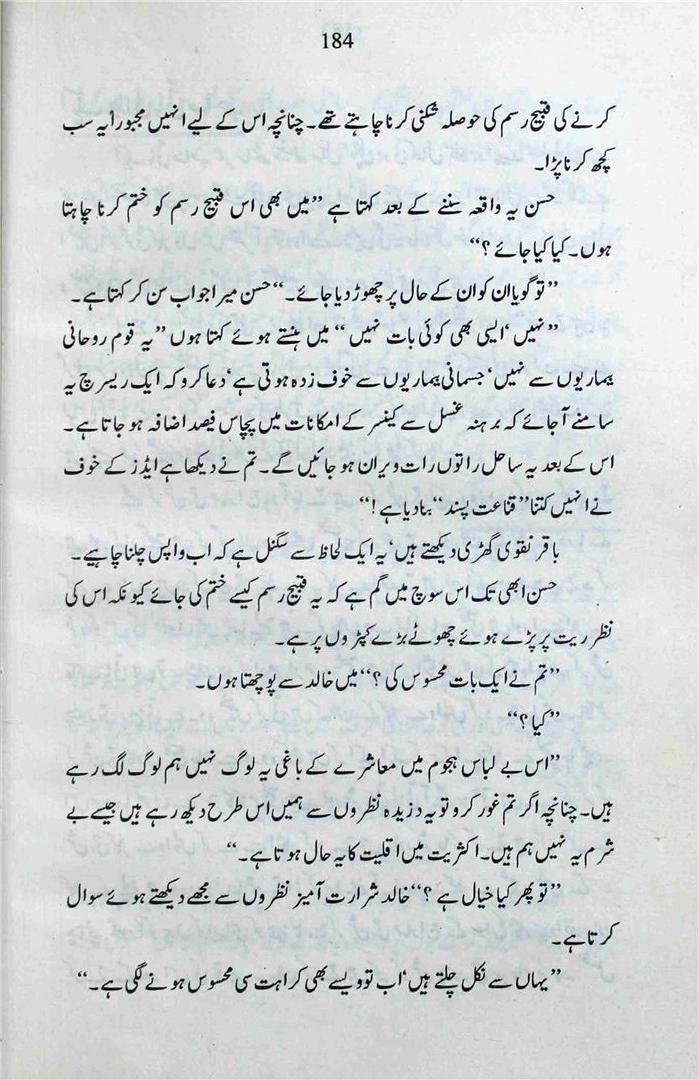 184
کرنے کی قبیح رسم کی حوصلہ شکنی کرنا چاہتے تھے۔ چنانچہ اس کے لیے انہیں مجبوراً یہ سب
کچھ کرنا پڑا۔
حسن یہ واقعہ سننے کے بعد کہتا ہے ’’میں بھی اس قبیح رسم کو ختم کرنا چاہتا
ہوں۔ کیا کیا جائے ؟‘‘
’’تو گویا ان کو ان کے حال پر چھوڑ دیا جائے۔‘‘ حسن میرا جواب سن کر کہتا ہے۔
’’نہیں‘ ایسی بھی کوئی بات نہیں ‘‘ میں ہنستے ہوئے کہتا ہوں ’’یہ قوم روحانی
بیماریوں سے نہیں‘ جسمانی بیماریوں سے خوف زدہ ہوتی ہے‘ دعا کرو کہ ایک ریسرچ یہ
سامنے آ جائے کہ برہنہ غسل سے کینسر کے امکانات میں پچاس فیصد اضافہ ہو جاتا ہے۔
اس کے بعد یہ ساحل راتوں رات ویران ہو جائیں گے۔ تم نے دیکھا ہے ایڈز کے خوف
نے انہیں کتنا ’’قناعت پسند‘‘ بنا دیا ہے !‘‘
باقر نقوی گھڑی دیکھتے ہیں‘ یہ ایک لحاظ سے سگنل ہے کہ اب واپس چلنا چاہیے۔
حسن ابھی تک اس سوچ میں گم ہے کہ یہ قبیح رسم کیسے ختم کی جائے کیونکہ اس کی
نظر ریت پر پڑے ہوئے چھوٹے بڑے کپڑوں پر ہے۔
’’تم نے ایک بات محسوس کی ؟‘‘ میں خالد سے پوچھتا ہوں۔
’’کیا ؟‘‘
’’اس بے لباس ہجوم میں معاشرے کے باغی یہ لوگ نہیں ہم لوگ لگ رہے
ہیں۔ چنانچہ اگر تم غور کرو تو یہ دزیدہ نظروں سے ہمیں اس طرح دیکھ رہے ہیں جیسے بے
شرم یہ نہیں ہم ہیں۔ اکثریت میں اقلیت کا یہ حال ہوتا ہے۔‘‘
’’تو پھر کیا خیال ہے ؟‘‘ خالد شرارت آمیز نظروں سے مجھے دیکھتے ہوئے سوال
کرتا ہے۔
’’یہاں سے نکل چلتے ہیں‘ اب تو ویسے بھی کراہت سی محسوس ہونے لگی ہے۔‘‘